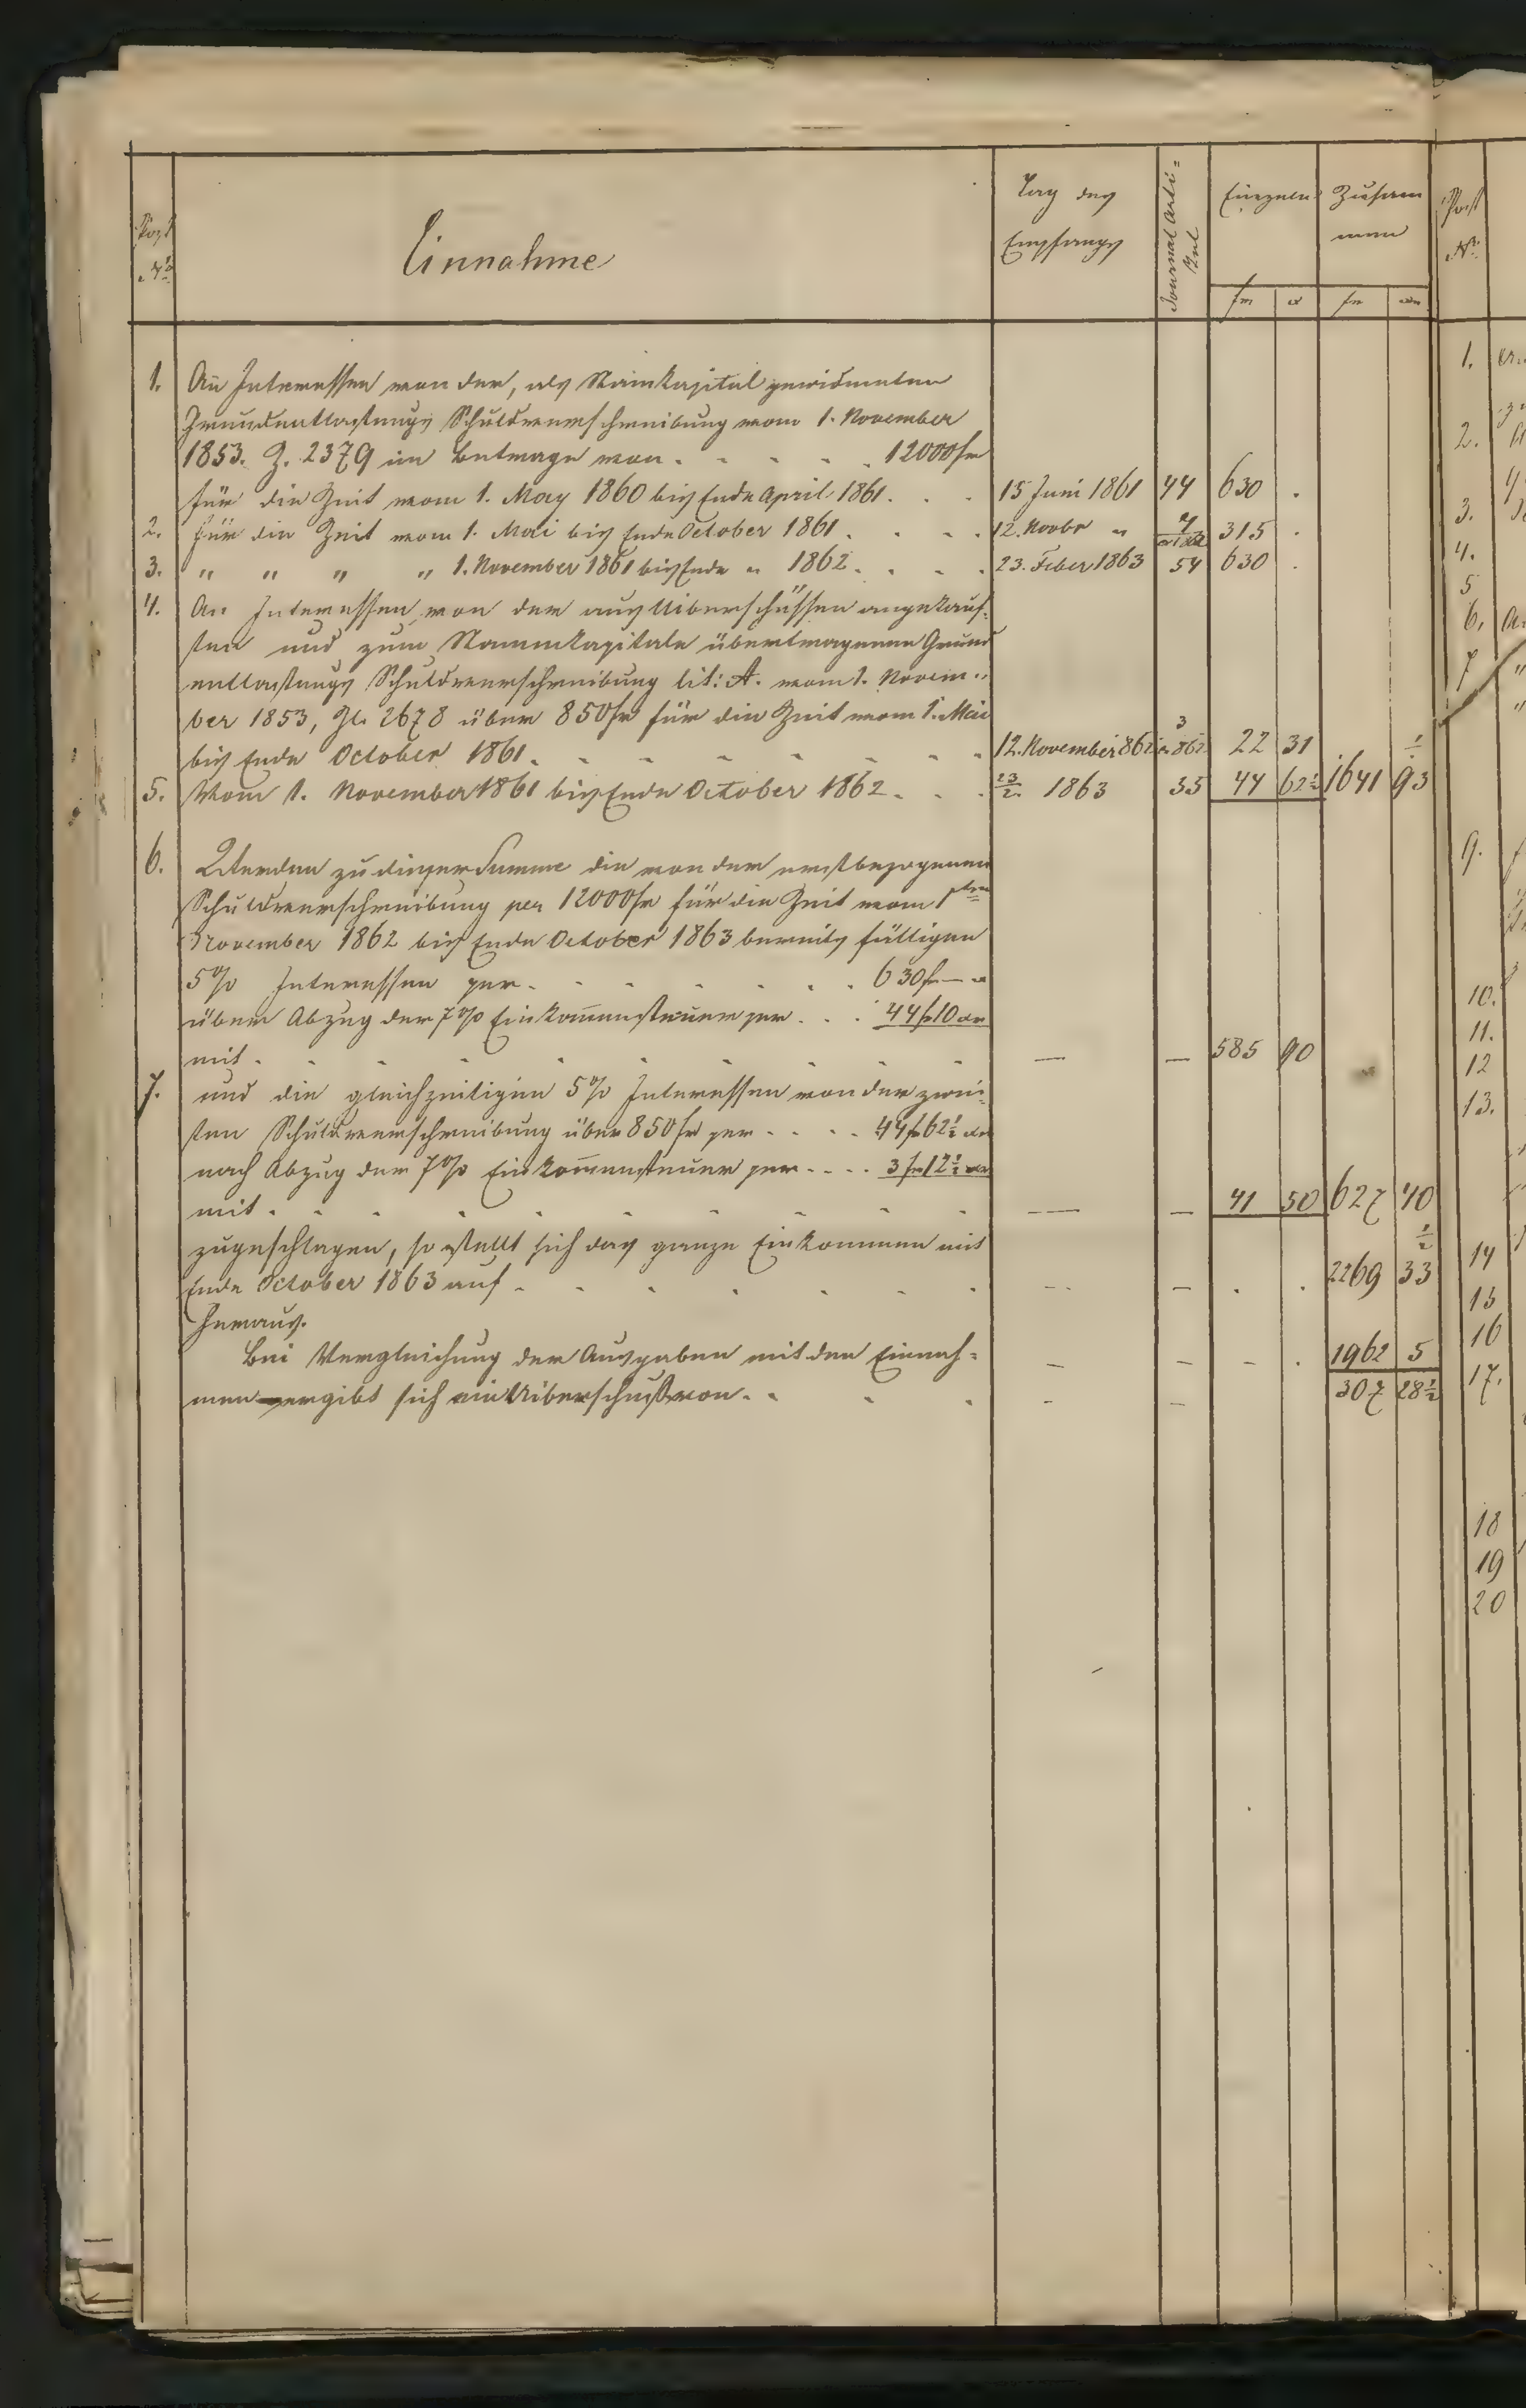 Post
Nº
Einnahme
Tag des
Empfangs
Journal Arti-
kel
Einzeln
Zusam
men
fr
x
fr
xr
1. An Interessen von der, als Stammkapital gewidmeten
Grundentlastungs Schuldverschreibung vom 1. November
1853. Z. 2379 im Betrage von . . . . 12000 fr
für die Zeit vom 1. May 1860 bis Ende April 1861 . . . 15 Juni 1861 44 630 .
2. für die Zeit vom 1. Mai bis Ende October 1861 . . . . 12. Novbr " 315 .
3. " " " " 1. November 1861 bis Ende " 1862 . . . . 23. Feber 1863 54 630 .
4. An Interessen von der aus Uiberschüssen angekauf-
ten und zum Stammkapitale übertragenen Grund
entlastungs Schuldverschreibung lit: A. vom 1. Novem-
ber 1853, Zl. 2678 über 850 fr für die Zeit vom 1. Mai
bis Ende October 1861 . . . . . . 12. November 862 3 862 22 31
5. Vom 1. November 1861 bis Ende October 1862 . . . 23/2. 1863 55 44 62½ 1641 93½
6. Werden zu dieser Summe die von der erstbezogenen
Schuldverschreibung per 12000 fr für die Zeit vom 1ten
November 1862 bis Ende October 1863 bereits fälligen
5% Interessen per . . . . . . 630 fr — x
über Abzug der 7% Einkommensteuer per . . . 44 fr 10 xr
mit . . . . . . . . — — 585 90
7. und die gleichzeitigen 5% Interessen von der zwei-
ten Schuldverschreibung über 850 fr per . . . . 44 fr 62½ xr
nach Abzug der 7% Einkommensteuer per . . . . 3 fr 12½ xr
mit . . . . . . . . — — 41 50 627 40
zugeschlagen, so stellt sich das ganze Einkommen mit
Ende October 1863 auf . . . . . . — — . . 2269 33½
heraus.
Bei Vergleichung der Ausgaben mit den Einnah-
— — — . 1962 5
men ergibt sich ein Uiberschuß von . . . . — — 307 28½
Post
Nº
1.
2.
3.
4.
5
6.
7
9.
10.
11.
12
13.
14
15
16
17.
18
19
20